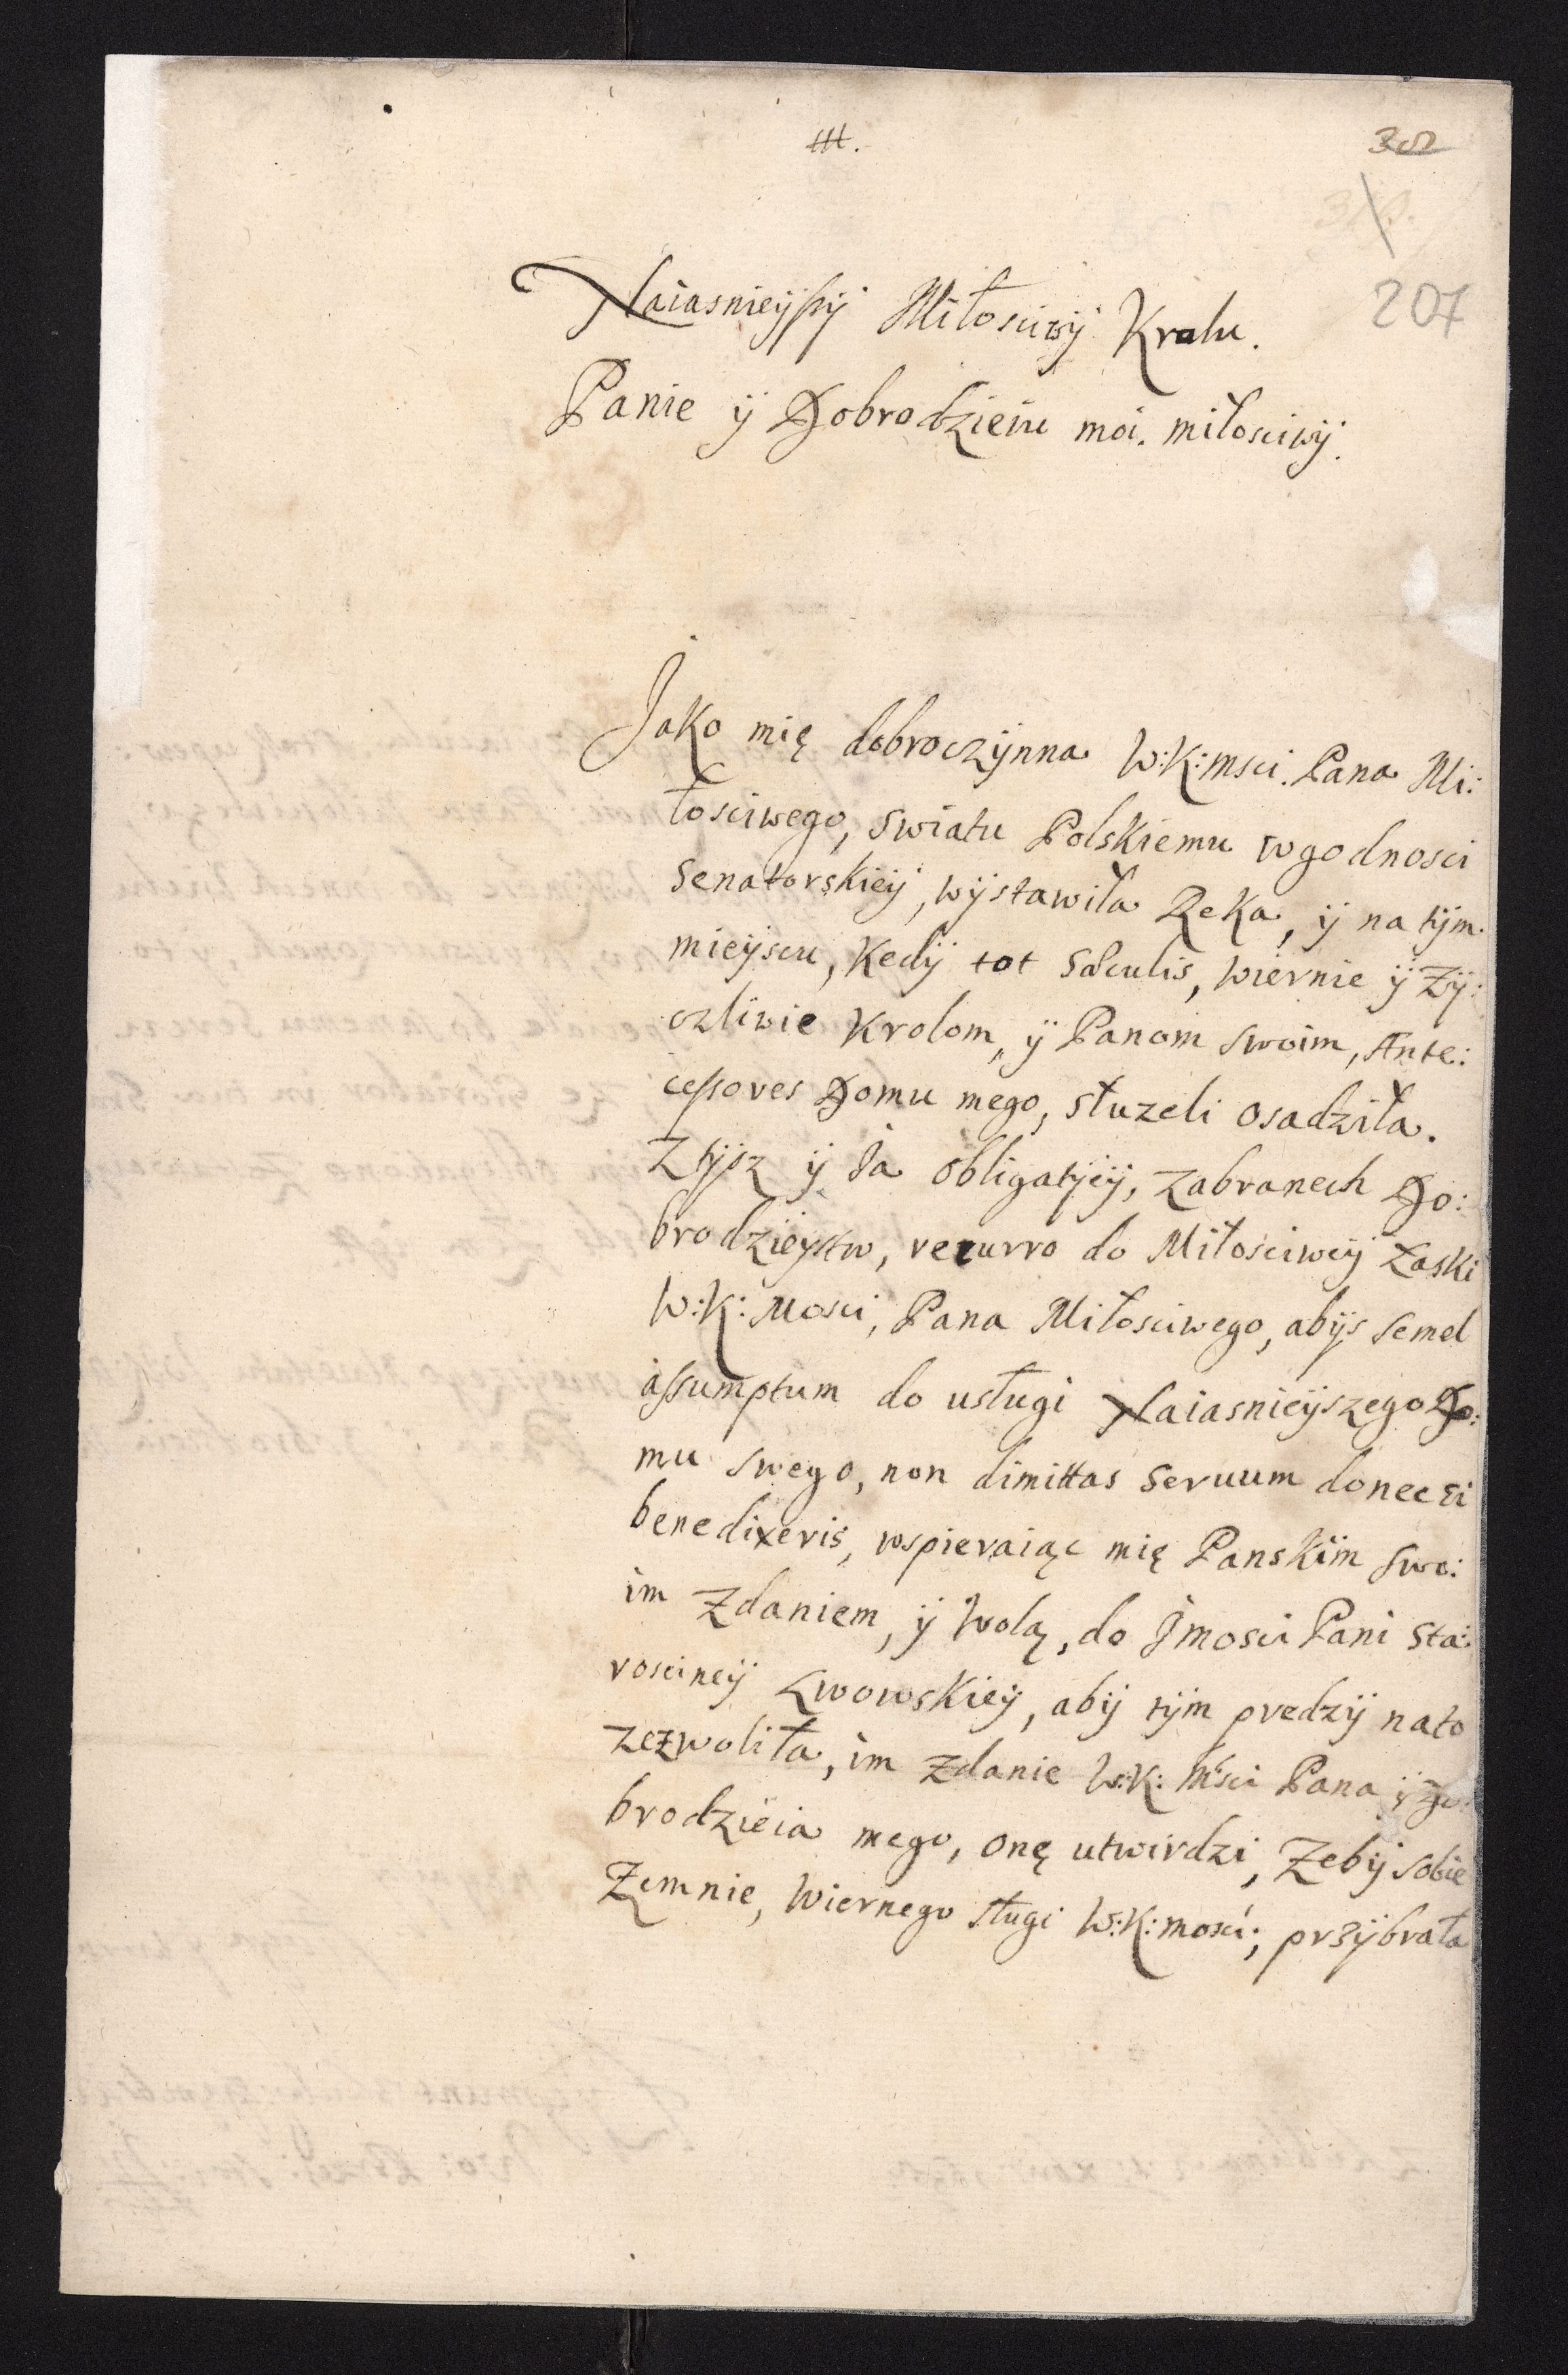 ttt.
302
207
Naiasnieÿszÿ Miłosciwÿ Kralu.
Panie ÿ Dobrodzieiu moi. miłosciwÿ.
Jako mię dobroczÿnna W:K:msci. Pana Mi:
łosciwego, swiatu Polskiemu wgodnosci
Senatorskieÿ, wÿstawiła Ręka, ÿ na tÿm.
mieÿscu, Kedÿ tot Sæculis, wiernie ÿ Zÿ:
czliwie Krolom, ÿ Panom swoim, Ante:
cessores Domu mego, słuzeli osadziła.
Ztÿsz ÿ Ja obligatÿeÿ, zabranech Do:
brodzieystw, recurro do Miłosciweÿ Łaski
W:K: Mosci, Pana Miłosciwego, abÿs Semel
assumptum do usługi Naiasnieÿszego Do:
mu swego, non dimittas Seruum donec Ei
benedixeris, wspieraiąc mię Panskim swo:
im Zdaniem, ÿ Wolą, do Jmosci Pani Sta:
roscineÿ Lwowskieÿ, abÿ tÿm predzÿ nato
zezwoliła, im Zdanie W:K: Msci Pana ÿ Do:
brodzieia mego, onę utwirdzi, Zebÿ sobie
Zemnie, Wiernego sługi W:K: mosci; przÿbrała